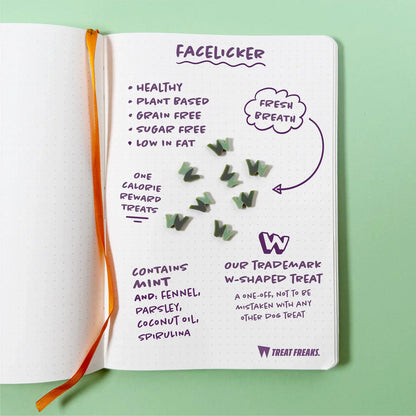 FACELICKER
• HEALTHY
• PLANT BASED
• GRAIN FREE
• SUGAR FREE
• LOW IN FAT
FRESH
BREATH
ONE
CALORIE
REWARD
TREATS
CONTAINS
MINT
AND: FENNEL,
PARSLEY,
COCONUT OIL,
SPIRULINA
W
OUR TRADEMARK
W-SHAPED TREAT
A ONE-OFF, NOT TO BE
MISTAKEN WITH ANY
OTHER DOG TREAT
W TREAT FREAKS.